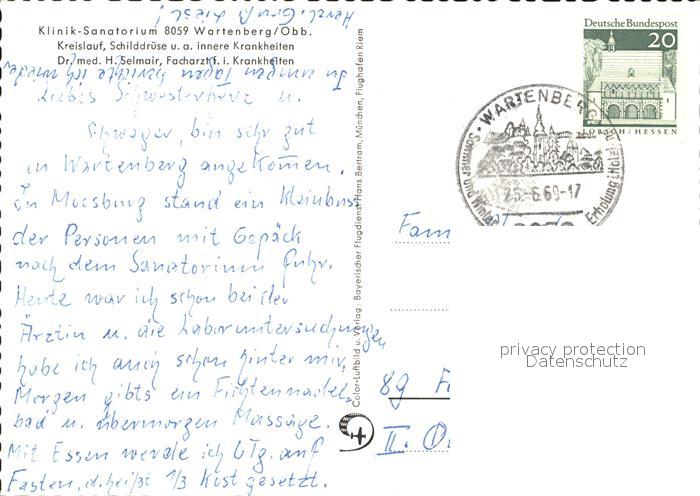 Klinik-Sanatorium 8059 Wartenberg/Obb.
Kreislauf, Schilddrüse u. a. innere Krankheiten
Dr. med. H. Selmair, Facharzt f. i. Krankheiten
Liebes Schwesterherz u.
Schwager, bin sehr gut
in Wartenberg angekommen.
In Moosburg stand ein Kleinbus
der Personen mit Gepäck
nach dem Sanatorium fuhr.
Heute war ich schon bei der
Ärztin u. die Laboruntersuchungen
habe ich auch schon hinter mir,
Morgen gibts ein Fichtennadel-
bad u. übermorgen Massage.
Mit Essen werde ich 6Tg. auf
Fasten, d. heißt 1/3 Kost gesetzt.
In einigen Tagen berichte ich wieder
Herzl. Gruß Liesl!
Color-Luftbild u. Verlag: Bayerischer Flugdienst Hans Bertram, München, Flughafen Riem
Deutsche Bundespost
20
LORSCH/HESSEN
WARTENBERG
Sommer und Winter
Erholung
25.-6.69-17
Fam
89
II.
privacy protection
Datenschutz